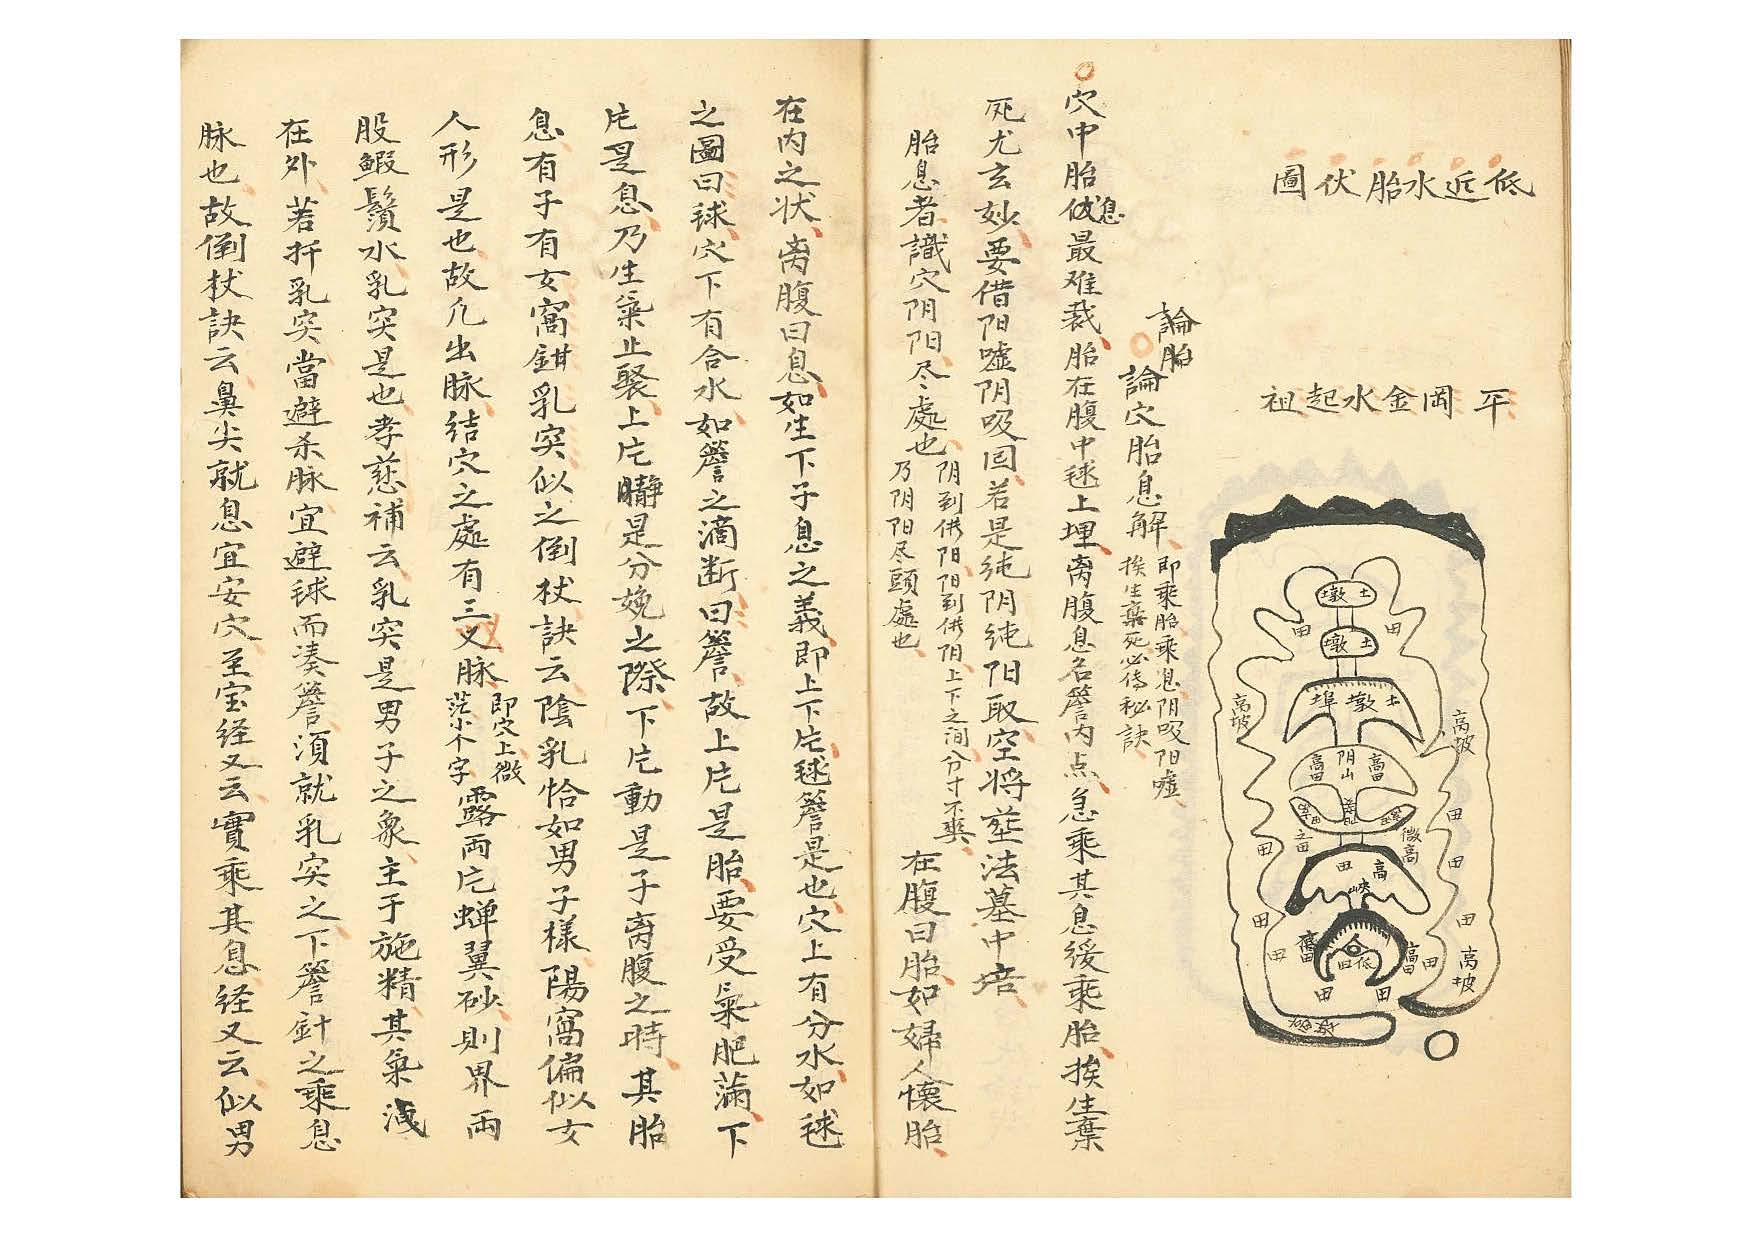 低近水胎伏圖
平岡金水起祖
土墩
土墩
土墩埠
高坡
高坡
田
田
高田
阴山
高田
田
田
田
微高
高
田
峽
田
田
田
高田
低田
高田
田
田
田
高坡
論胎
論穴胎息解
即乘胎乘息阴吸阳嘘
挨生棄死必傳秘訣
穴中胎伏息最难裁胎在腹中毬上埋离腹息名簷内点急乘其息緩乘胎挨生棄
死尤玄妙要借阳嘘阴吸回若是纯阴纯阳取空将塟法墓中培
胎息者識穴阴阳尽處也
阴到供阳阳到供阴上下之间分寸不爽
乃阴阳尽頭處也
在腹曰胎如婦人懷胎
在内之状离腹曰息如生下子息之義即上下片毬簷是也穴上有分水如毬
之圖曰毬穴下有合水如簷之滴断曰簷故上片是胎要受氣肥滿下
片是息乃生氣止聚上片靜是分娩之際下片動是子离腹之時其胎
息有子有女窩鉗乳突似之倒杖訣云陰乳恰如男子樣陽窩偏似女
人形是也故凡出脉結穴之處有三义脉
即穴上微
茫小个字
露両片蝉翼砂則界両
股蝦鬚水乳突是也孝慈補云乳突是男子之象主于施精其氣洩
在外若扦乳突當避杀脉宜避毬而凑簷須就乳突之下簷針之乘息
脉也故倒杖訣云鼻尖就息宜安穴至宝経又云實乘其息経又云似男